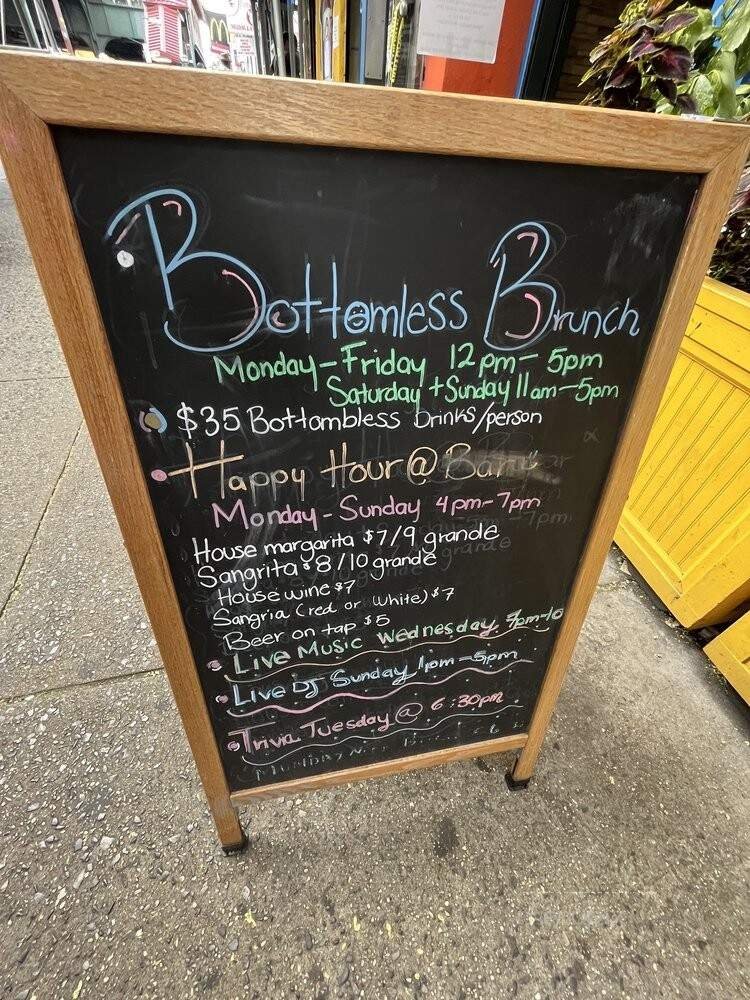 Bottomless Brunch
Monday-Friday 12pm-5pm
Saturday + Sunday 11am-5pm
$35 Bottombless Drinks/person
Happy Hour @
Monday-Sunday 4pm-7pm
House margarita $7/9 grande
Sangrita $8/10 grande
House wine $7
Sangria (red or white) $7
Beer on tap $5
Live Music Wednesday 7pm-10
Live DJ Sunday 1pm-5pm
Trivia Tuesday @ 6:30pm